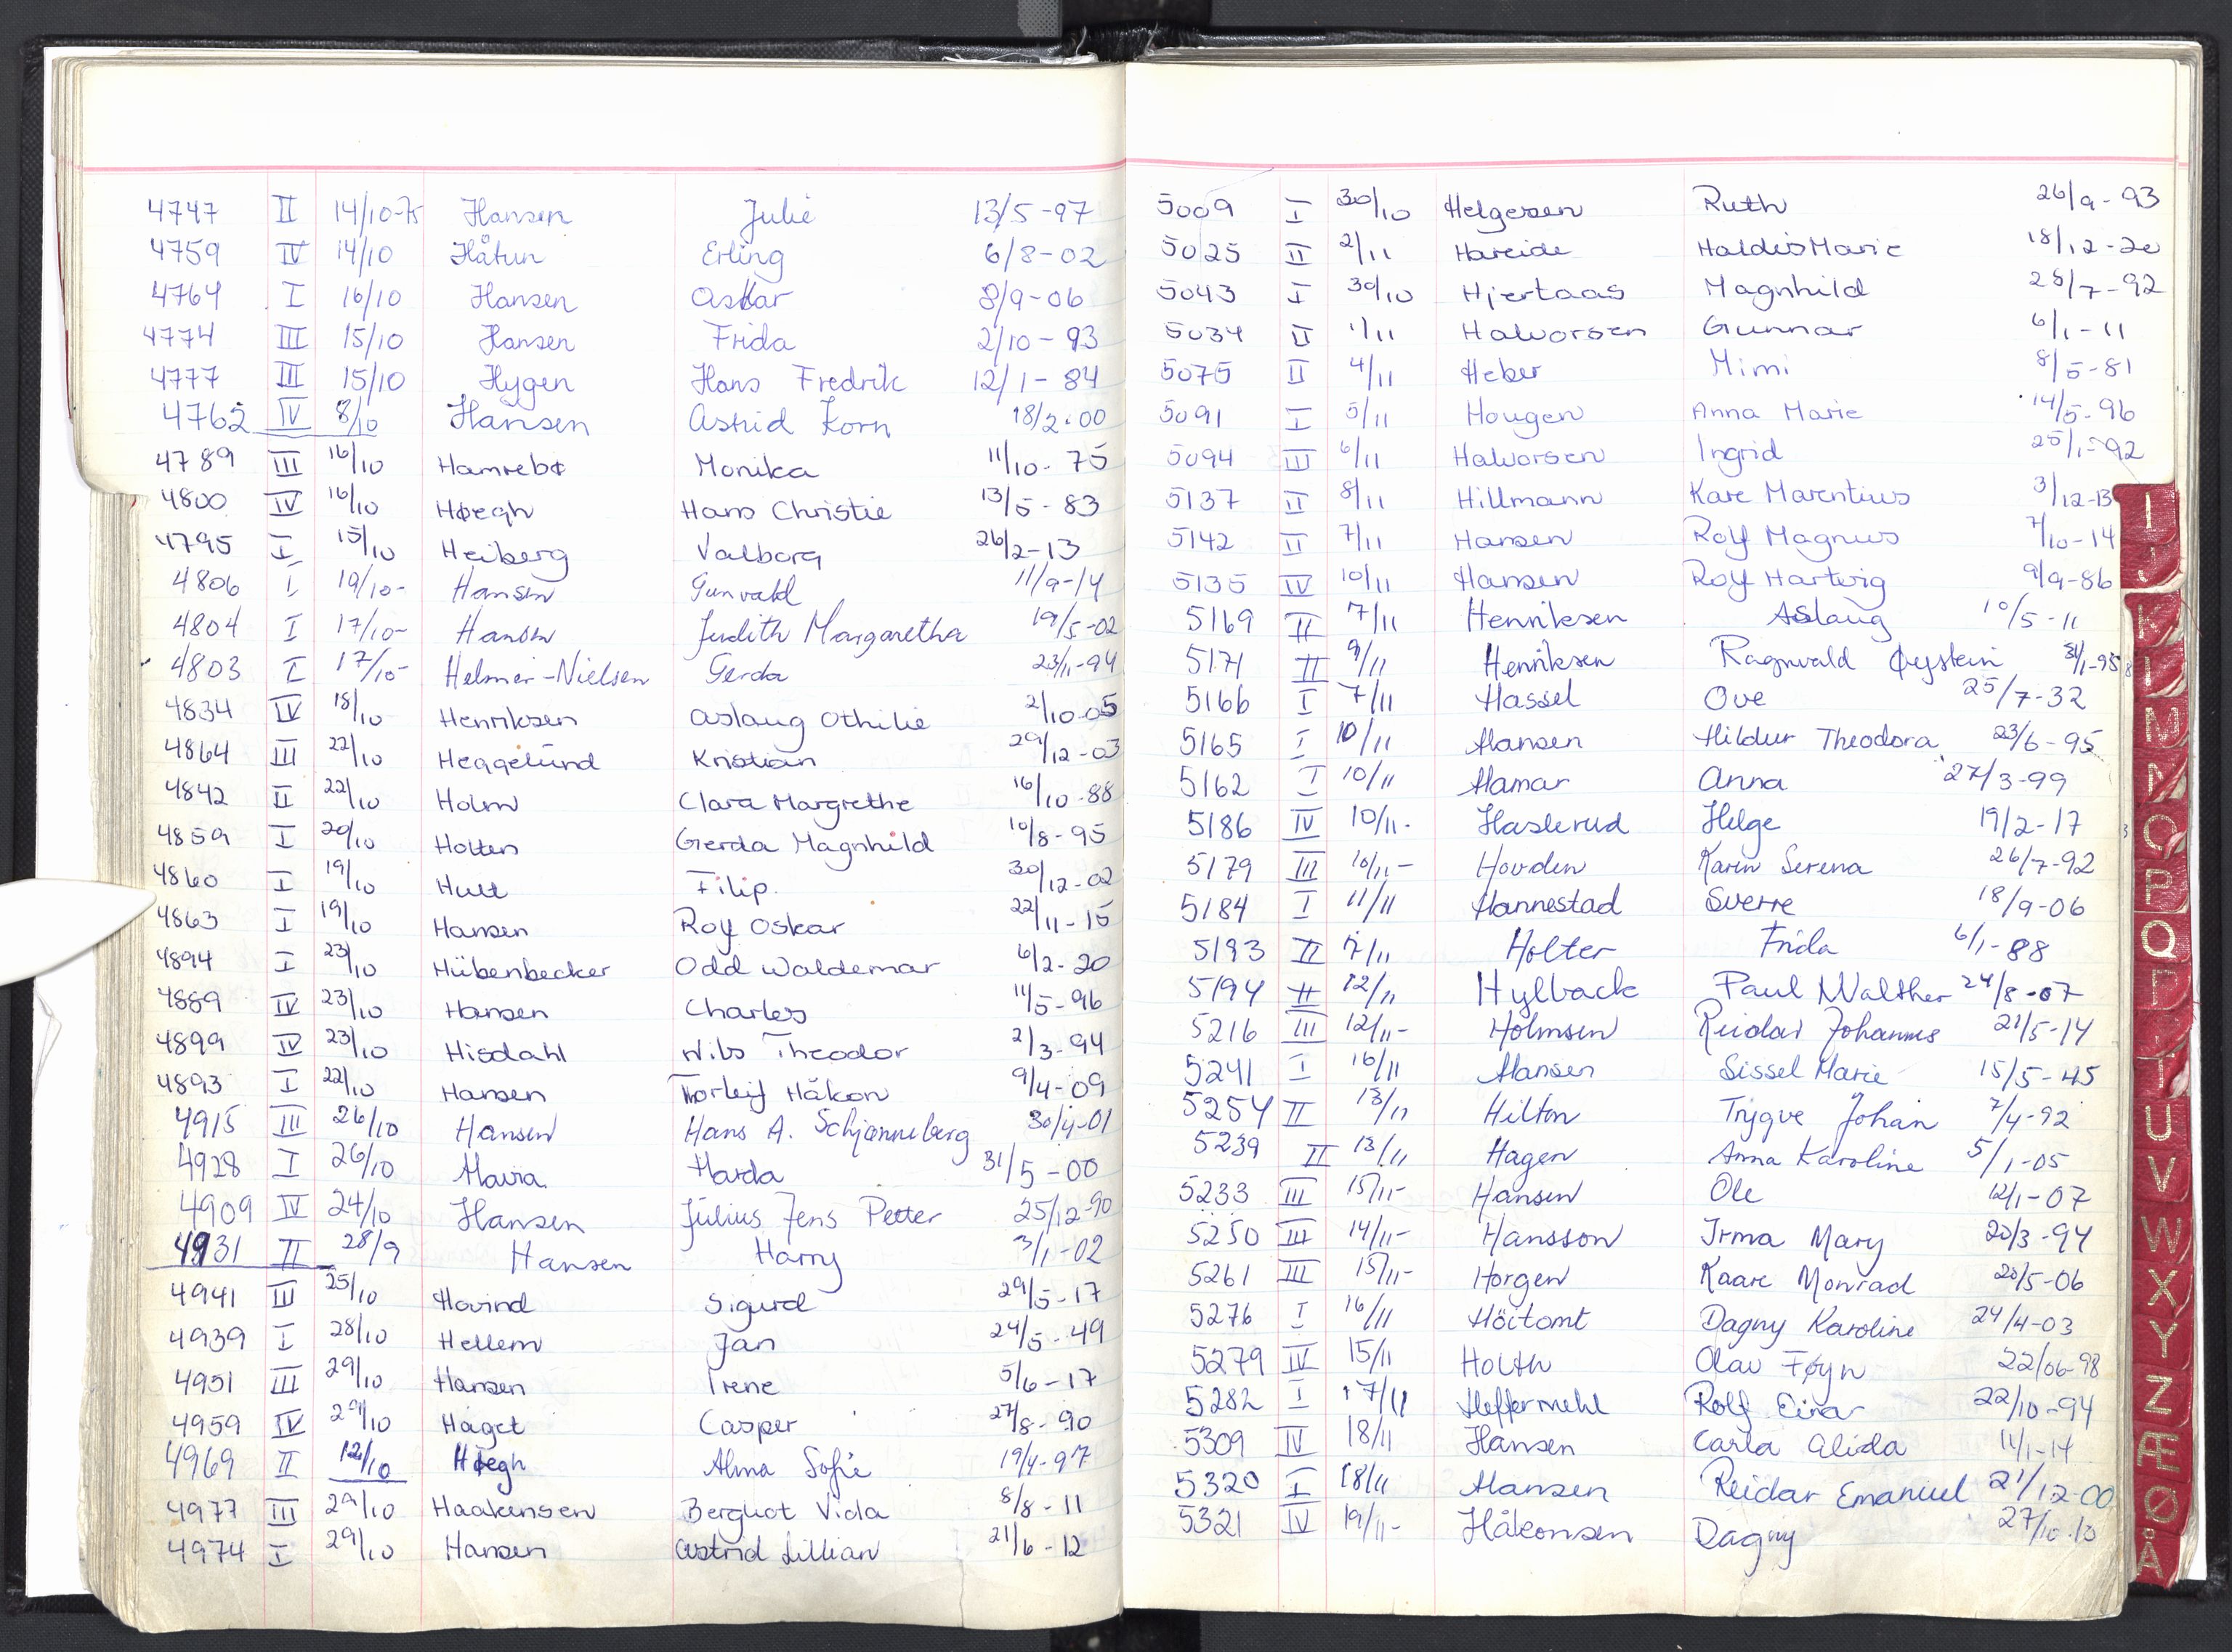 4747 II 14/10-75 Hansen Julie 13/5-97
4759 IV 14/10 Håtun Erling 6/8-02
4764 I 16/10 Hansen Oskar 8/9-06
4774 III 15/10 Hansen Frida 2/10-93
4777 III 15/10 Hygen Hans Fredrik 12/1-84
4762 IV 8/10 Hansen Astrid Korn 18/2.00
4789 III 16/10 Hamrebø Monika 11/10-75
4800 IV 16/10 Høegh Hans Christie 13/5-83
4795 I 15/10 Heiberg Valborg 26/2-13
4806 I 19/10- Hansen Gunvald 11/9-14
4804 I 17/10- Hansen Judith Margaretha 19/5-02
4803 I 17/10- Helmer-Nielsen Gerda 23/11-94
4834 IV 18/10 Henriksen Aslaug Othilie 2/10-05
4864 III 22/10 Heggelund Kristian 29/12-03
4842 II 22/10 Holm Clara Margrethe 16/10-88
4859 I 20/10 Holten Gerda Magnhild 10/8-95
4860 I 19/10 Hull Filip. 30/12-02
4863 I 19/10 Hansen Roy Oskar 22/11-15
4894 I 23/10 Hübenbecker Odd Waldemar 6/2-20
4889 IV 23/10 Hansen Charles 11/5-96
4899 IV 23/10 Hisdahl Nils Theodor 2/3-94
4893 I 22/10 Hansen Thorleif Håkon 9/4-09
4915 III 26/10 Hansen Hans A. Schjønneberg 30/4-01
4928 I 26/10 Havra Harda 31/5-00
4909 IV 24/10 Hansen Julius Jens Petter 25/12-90
4931 II 28/9 Hansen Harry 3/1-02
4941 III 25/10 Hovind Sigurd 29/5-17
4939 I 28/10 Hellem Jan 24/5-49
4951 III 29/10 Hansen Irene 5/6-17
4959 IV 29/10 Haget Casper 27/8-90
4969 II 12/10 Høegh Alma Sofie 19/4-97
4977 III 29/10 Haakensen Bergliot Vida 8/8-11
4974 I 29/10 Hansen Astrid Lillian 21/6-12
5009 I 30/10 Helgesen Ruth 26/9-93
5025 II 2/11 Hareide Haldis Marie 18/12-20
5043 I 30/10 Hjertaas Magnhild 28/7-92
5034 II 1/11 Halvorsen Gunnar 6/1-11
5075 II 4/11 Heber Mimi 8/5-81
5091 I 5/11 Hougen Anna Marie 14/5-96
5094 III 6/11 Halvorsen Ingrid 25/1-92
5137 II 8/11 Hillmann Kare Marentius 3/12-13
5142 II 7/11 Hansen Rolf Magnus 7/10-14
5135 IV 10/11 Hansen Rolf Hartvig 9/9-86
5169 II 7/11 Henriksen Aslaug 10/5-11
5171 II 9/11 Henriksen Ragnvald Øystein 31/1-95
5166 I 7/11 Hassel Ove 25/7-32
5165 I 10/11 Hansen Hildur Theodora 23/6-95
5162 I 10/11 Hamar Anna 27/3-99
5186 IV 10/11. Haslerud Helge 19/2-17
5179 III 10/11- Hovden Karin Serena 26/7-92
5184 I 11/11 Hannestad Sverre 18/9-06
5193 II 7/11 Holter Frida 6/1-88
5194 II 12/11 Hylback Paul Walther 24/8-07
5216 III 12/11- Holmsen Reidar Johannes 21/5-14
5241 I 16/11 Hansen Sissel Marie 15/5-45
5254 II 13/11 Hilton Trygve Johan 7/4-92
5239 II 13/11 Hagen Anna Karoline 5/1-05
5233 III 15/11- Hansen Ole 12/1-07
5250 III 14/11- Hansson Irma Mary 20/3-94
5261 III 15/11- Horgen Kaare Monrad 20/5-06
5276 I 16/11 Höitomt Dagny Karoline 24/4-03
5279 IV 15/11 Holth Olav Føyn 22/06-98
5282 I 17/11 Heffermehl Rolf Einar 22/10-94
5309 IV 18/11 Hansen Carla Alida 11/1-14
5320 I 18/11 Hansen Reidar Emanuel 21/12-00
5321 IV 19/11- Håkonsen Dagny 27/10.10
I
J
K
L
M
N
O
P
Q
R
T
U
V
W
X
Y
Z
Æ
Ø
Å